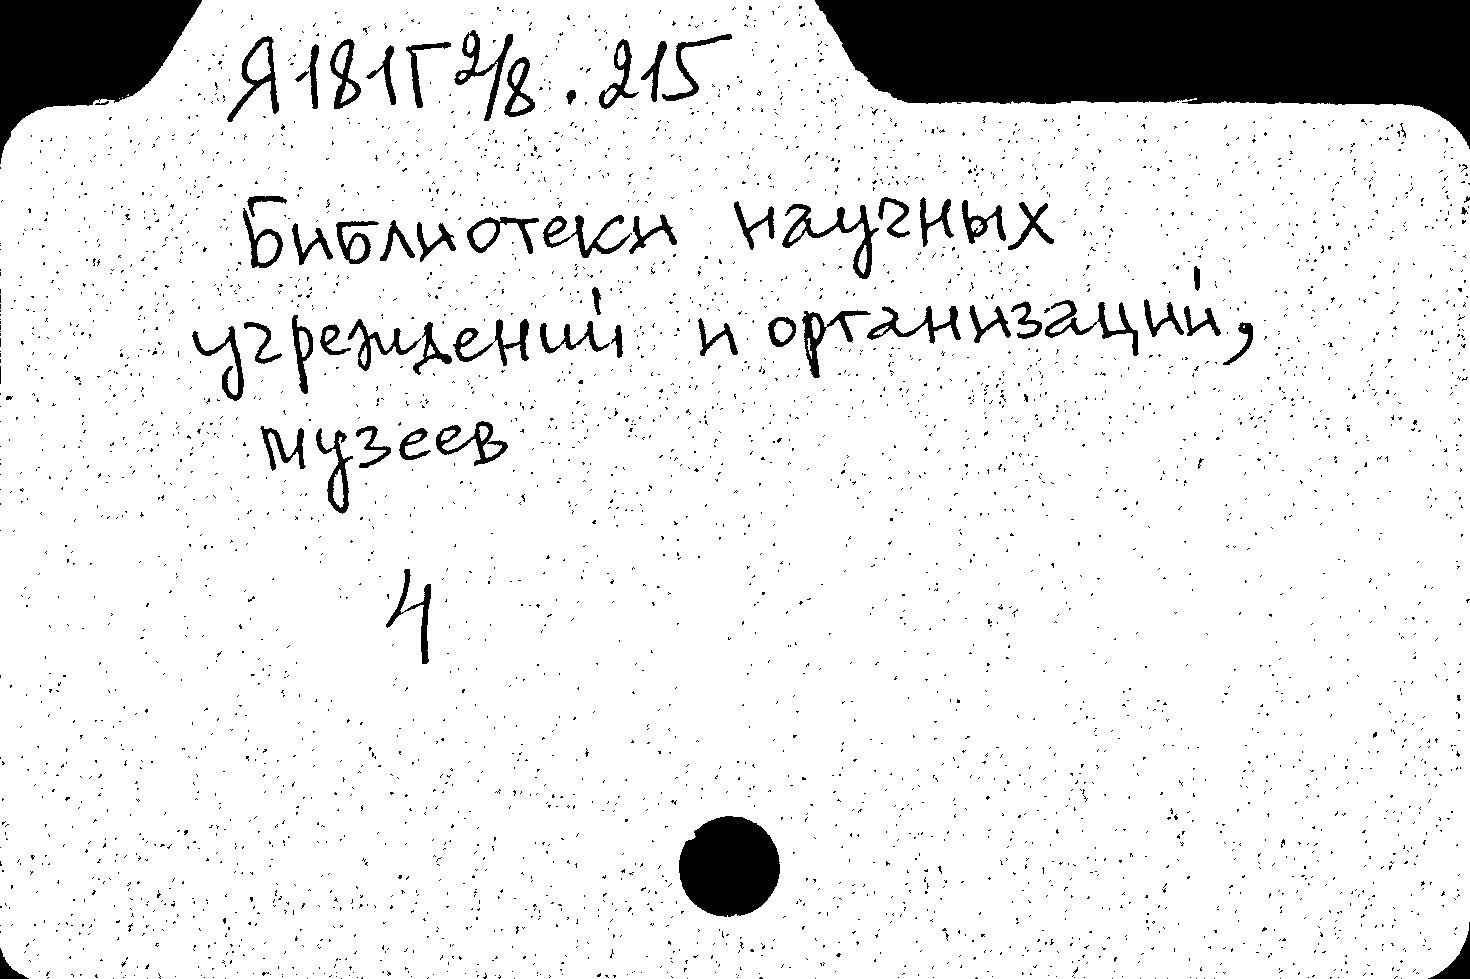 Я181Г2/8.215
Библиотеки научных
учреждений и организаций,
музеев
4